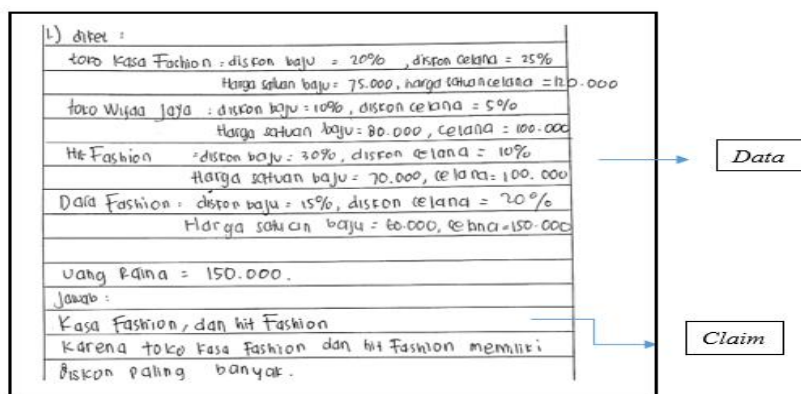 1.) diket :
toko Kasa Fashion : diskon baju = 20% , diskon celana = 25%
Harga satuan baju = 75.000, harga satuan celana = 120.000
toko Wijaa Jaya : diskon baju = 10% , diskon celana = 5%
Harga satuan baju = 80.000 , celana = 100.000
Hit Fashion : diskon baju = 30% , diskon celana = 10%
Harga satuan baju = 70.000, celana = 100.000
Data
Dara Fashion : diskon baju = 15% , diskon celana = 20%
Harga satuan baju = 60.000, celana = 150.000
Uang Raina = 150.000.
Jawab :
Kasa Fashion, dan hit Fashion
Karena toko Kasa Fashion dan hit Fashion memiliki
diskon paling banyak.
Claim